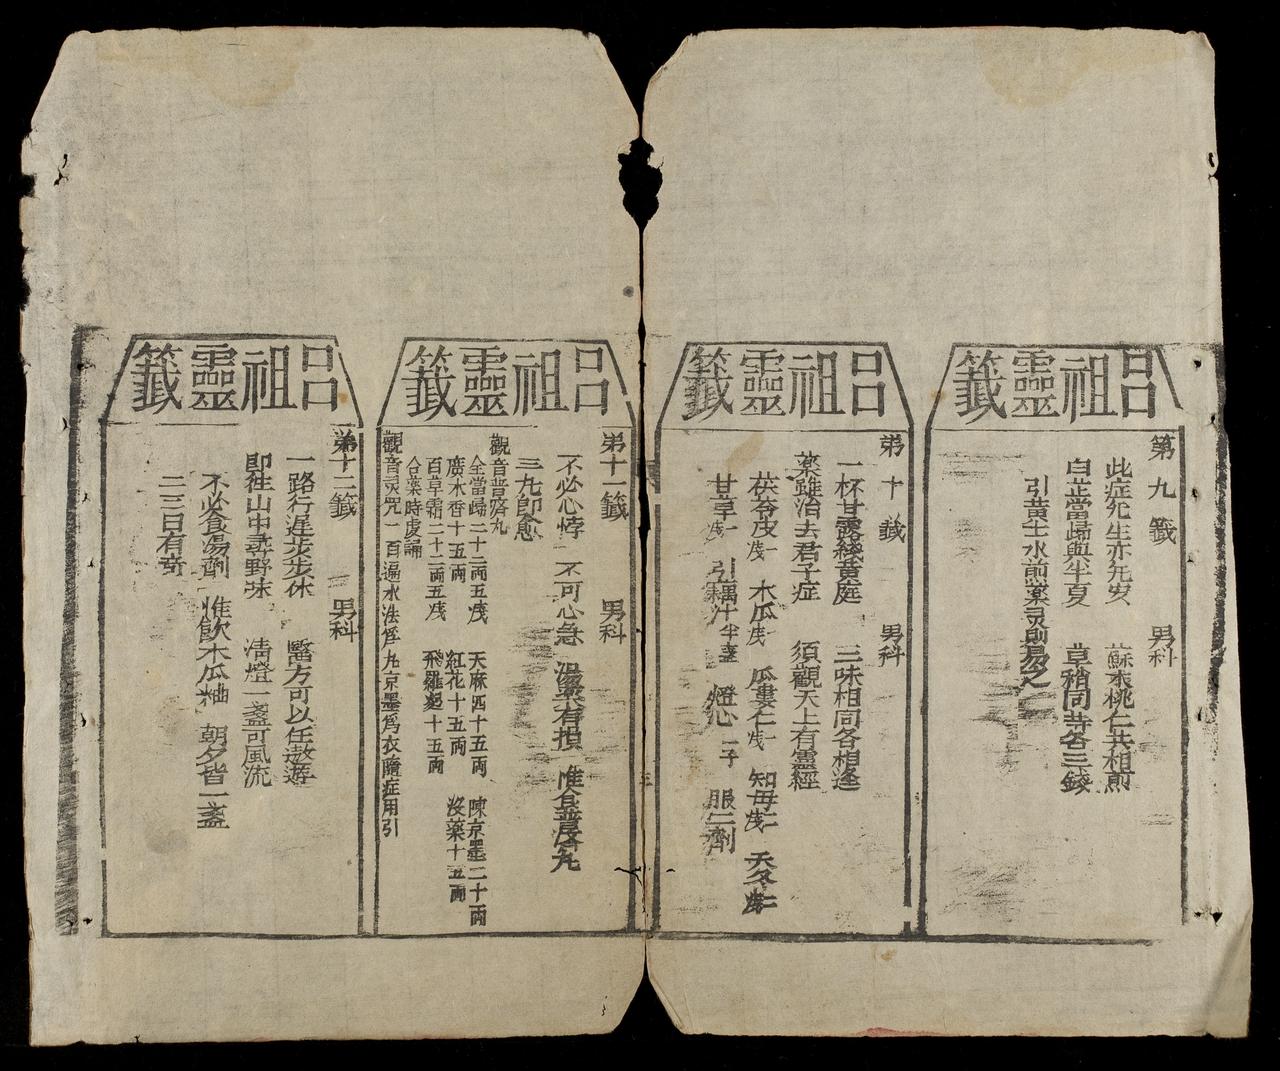 呂祖靈籤
第九籤 男科
此症先生亦先安 蘇木桃仁共相煎
白芷當歸與半夏 草稍同等各三錢
引黃土水前藥灵前易之
呂祖靈籤
弟十籤 男科
一杯甘露綫黄庭 三味相同各相逢
藥雖治去君子症 須觀天上有靈經
茯苓皮一戋 木瓜一戋 瓜蔞仁一戋 知母二戋 天冬二戋
甘草一戋 引藕汁半盞 燈心一子 服二劑
呂祖靈籤
弟十一籤 男科
不必心悖 不可心急 湯藥有損 惟食普濟丸
三九即愈
觀音普濟丸
全當歸二十二両五戋 天麻四十五両 陳京墨二十両
廣木香十五両 紅花十五両 沒藥十五両
百草霜二十二両五戋 飛羅麪十五両
合藥時虔誦
觀音灵咒一百遍水法為丸京墨為衣隨症用引
呂祖靈籤
弟十二籤 男科
一路行遲步步休 醫方可以任遨遊
即往山中尋野味 清燈一盞可風流
不必食湯劑 惟飲木瓜釉 朝夕皆一盞
二三日有奇